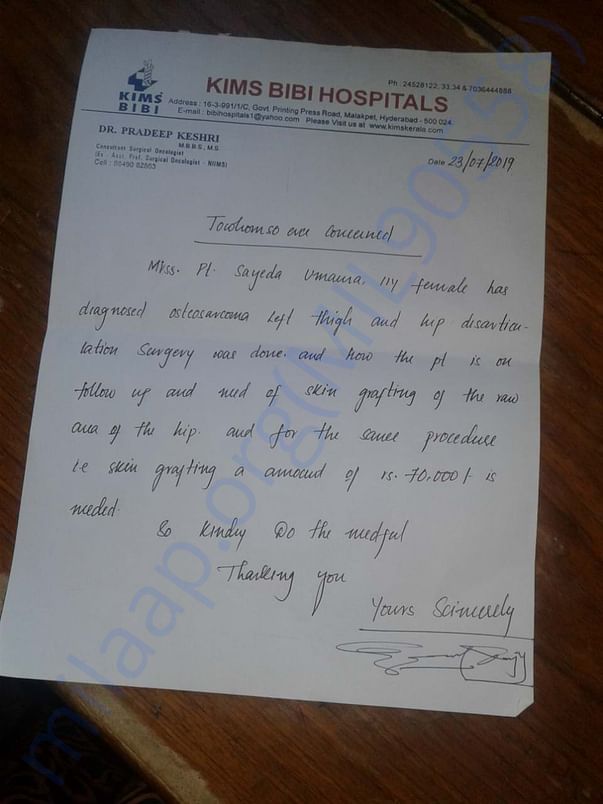 KIMS
BIBI
KIMS BIBI HOSPITALS
Ph : 24528122, 33,34 & 7036444888
Address : 16-3-991/1/C, Govt. Printing Press Road, Malakpet, Hyderabad - 500 024.
E-mail : bibihospitals1@yahoo.com Please Visit us at www.kimskerala.com
DR. PRADEEP KESHRI
M.B.B.S., M.S.
Consultant Surgical Oncologist
(Ex - Asst. Prof. Surgical Oncologist - NIMS)
Cell : 88490 82863
Date 23/07/2019
Towhomso ever Concerned
Miss. Pt. Sayeda Umama, 11y female has
diagnosed osteosarcoma Left thigh and hip disarticu-
lation Surgery was done. and now the pt is on
follow up and need of skin grafting of the raw
area of the hip. and for the same procedure
i.e skin grafting a amount of rs. 70,000/- is
needed.
So Kindly Do the needful
Thanking you
Yours Scincerely
milaap.org(MIL90558)